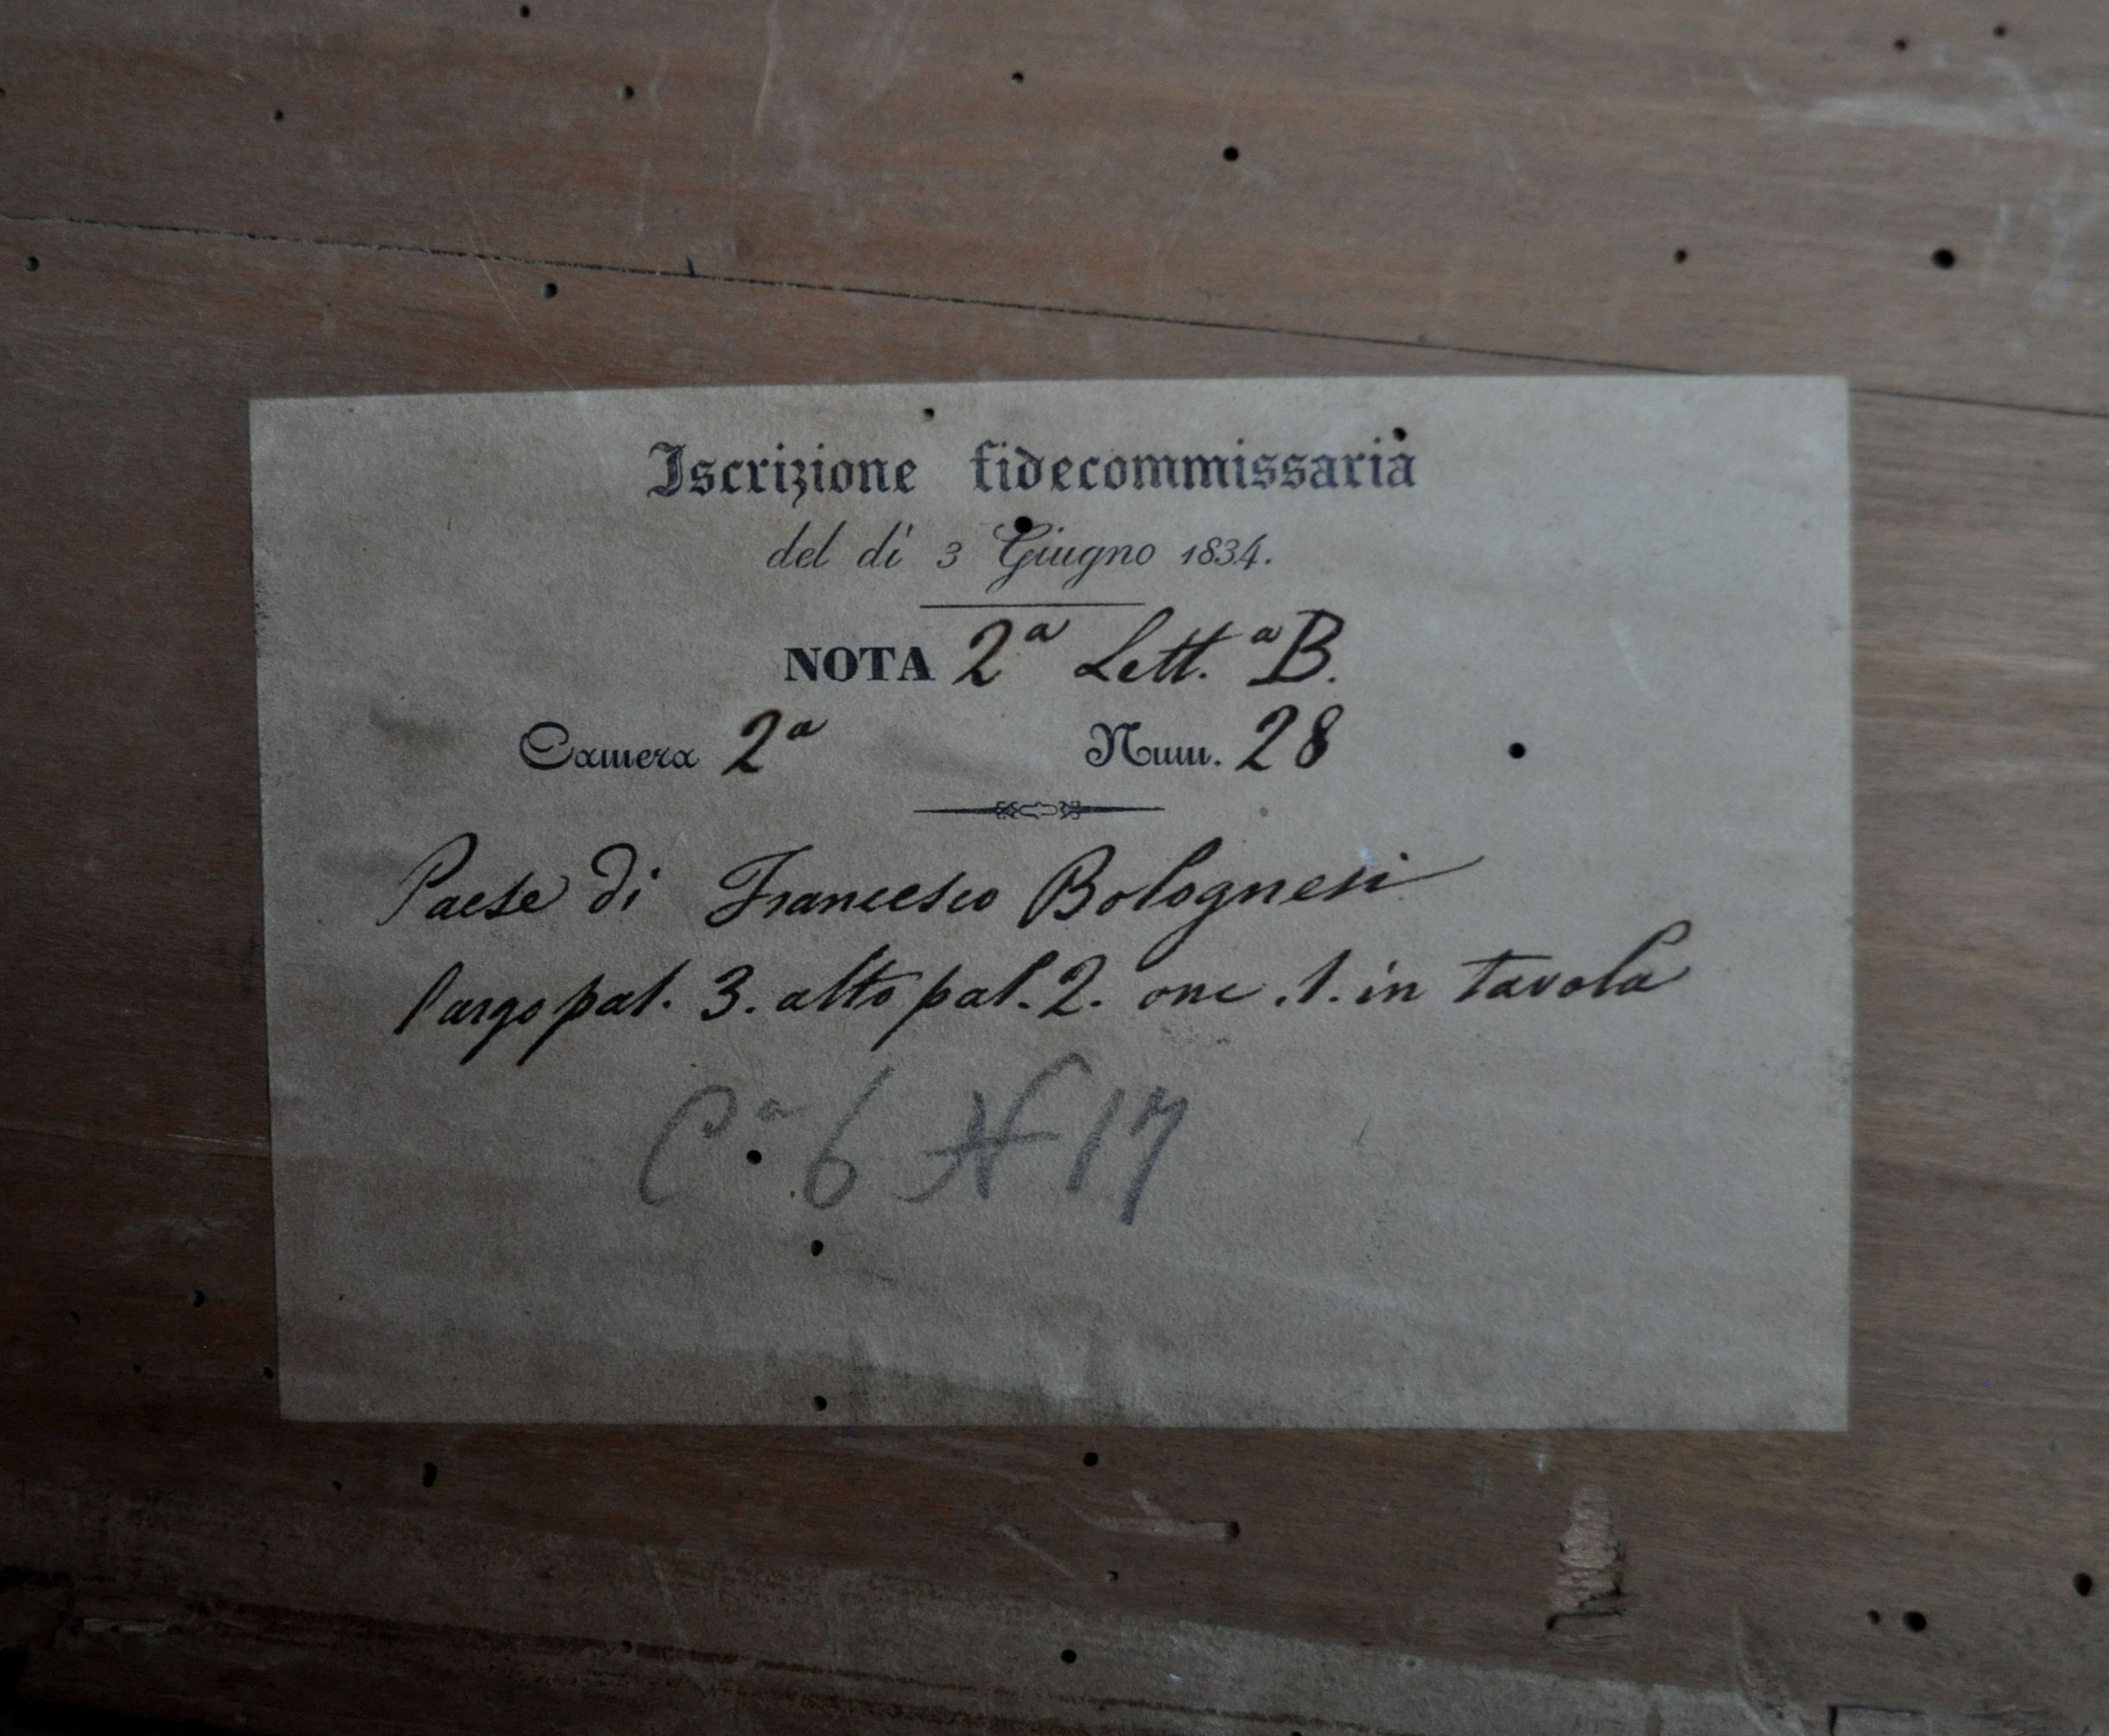 Iscrizione fidecommissaria
del dì 3 Giugno 1834.
NOTA 2ª Lett.ª B.
Camera 2ª Num. 28
Paese di Francesco Bolognesi
largo pal. 3. alto pal. 2. onc .1. in tavola
Cª 6 N 17